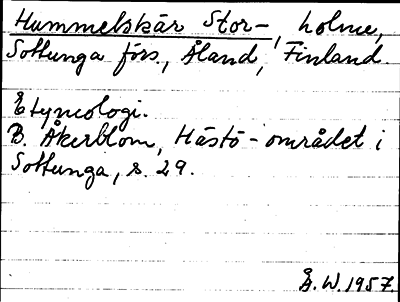 Hummelskär Stor-, holme,
Sottunga förs., Åland, Finland
Etymologi.
B. Åkerblom, Hästö-området i
Sottunga, s. 29.
Å. W. 1957.